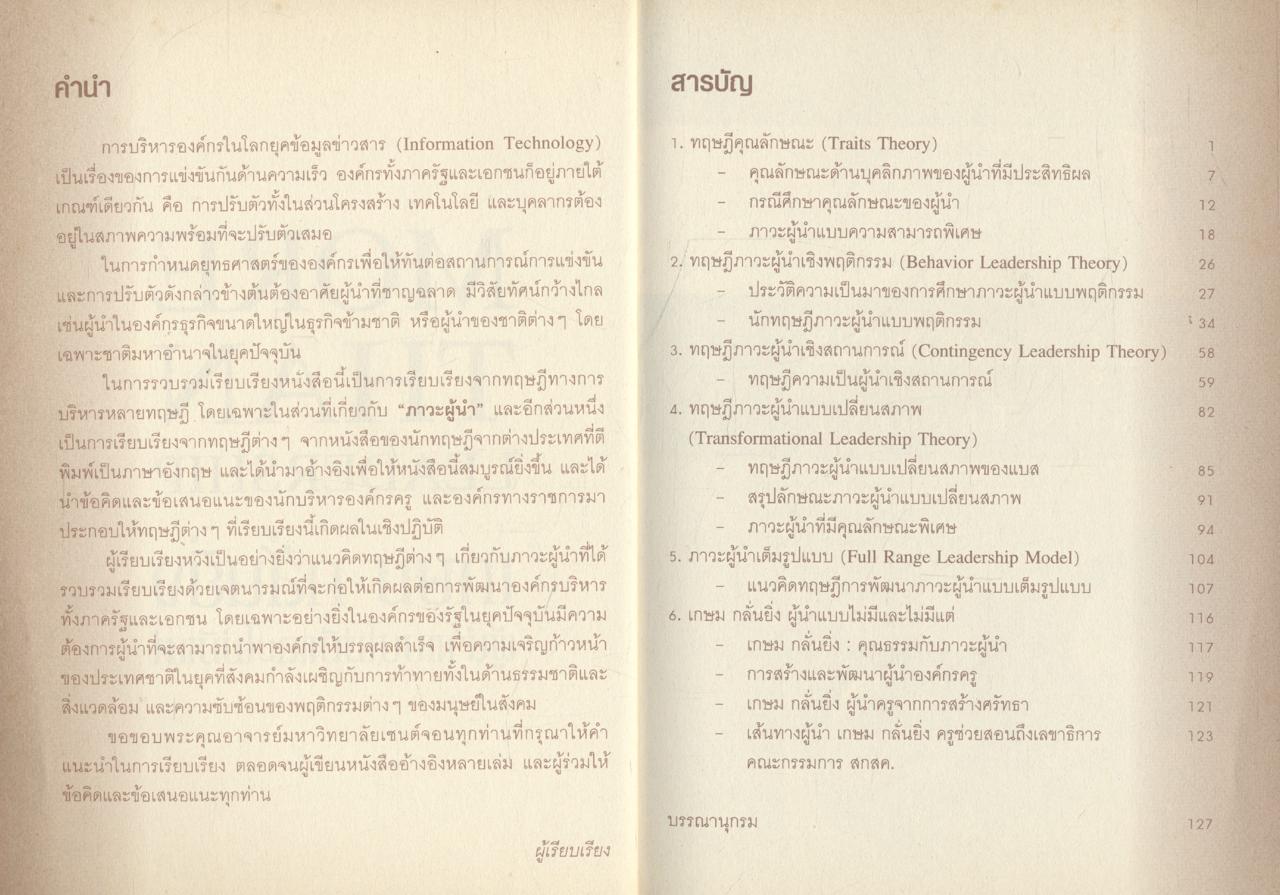 คำนำ
การบริหารองค์กรในโลกยุคข้อมูลข่าวสาร (Information Technology)
เป็นเรื่องของการแข่งขันกันด้านความเร็ว องค์กรทั้งภาครัฐและเอกชนก็อยู่ภายใต้
เกณฑ์เดียวกัน คือ การปรับตัวทั้งในส่วนโครงสร้าง เทคโนโลยี และบุคลากรต้อง
อยู่ในสภาพความพร้อมที่จะปรับตัวเสมอ
ในการกำหนดยุทธศาสตร์ขององค์กรเพื่อให้ทันต่อสถานการณ์การแข่งขัน
และการปรับตัวดังกล่าวข้างต้นต้องอาศัยผู้นำที่ชาญฉลาด มีวิสัยทัศน์กว้างไกล
เช่นผู้นำในองค์กรธุรกิจขนาดใหญ่ในธุรกิจข้ามชาติ หรือผู้นำของชาติต่างๆ โดย
เฉพาะชาติมหาอำนาจในยุคปัจจุบัน
ในการรวบรวมเรียบเรียงหนังสือนี้เป็นการเรียบเรียงจากทฤษฎีทางการ
บริหารหลายทฤษฎี โดยเฉพาะในส่วนที่เกี่ยวกับ “ภาวะผู้นำ” และอีกส่วนหนึ่ง
เป็นการเรียบเรียงจากทฤษฎีต่างๆ จากหนังสือของนักทฤษฎีจากต่างประเทศที่ตี
พิมพ์เป็นภาษาอังกฤษ และได้นำมาอ้างอิงเพื่อให้หนังสือนี้สมบูรณ์ยิ่งขึ้น และได้
นำข้อคิดและข้อเสนอแนะของนักบริหารองค์กรครู และองค์กรทางราชการมา
ประกอบให้ทฤษฎีต่างๆ ที่เรียบเรียงนี้เกิดผลในเชิงปฏิบัติ
ผู้เรียบเรียงหวังเป็นอย่างยิ่งว่าแนวคิดทฤษฎีต่างๆ เกี่ยวกับภาวะผู้นำที่ได้
รวบรวมเรียบเรียงด้วยเจตนารมณ์ที่จะก่อให้เกิดผลต่อการพัฒนาองค์กรบริหาร
ทั้งภาครัฐและเอกชน โดยเฉพาะอย่างยิ่งในองค์กรของรัฐในยุคปัจจุบันมีความ
ต้องการผู้นำที่จะสามารถนำพาองค์กรให้บรรลุผลสำเร็จ เพื่อความเจริญก้าวหน้า
ของประเทศชาติในยุคที่สังคมกำลังเผชิญกับการท้าทายทั้งในด้านธรรมชาติและ
สิ่งแวดล้อม และความซับซ้อนของพฤติกรรมต่างๆ ของมนุษย์ในสังคม
ขอขอบพระคุณอาจารย์มหาวิทยาลัยเซนต์จอนทุกท่านที่กรุณาให้คำ
แนะนำในการเรียบเรียง ตลอดจนผู้เขียนหนังสืออ้างอิงหลายเล่ม และผู้ร่วมให้
ข้อคิดและข้อเสนอแนะทุกท่าน
ผู้เรียบเรียง
สารบัญ
1. ทฤษฎีคุณลักษณะ (Traits Theory) 1
– คุณลักษณะด้านบุคลิกภาพของผู้นำที่มีประสิทธิผล 7
– กรณีศึกษาคุณลักษณะของผู้นำ 12
– ภาวะผู้นำแบบความสามารถพิเศษ 18
2. ทฤษฎีภาวะผู้นำเชิงพฤติกรรม (Behavior Leadership Theory) 26
– ประวัติความเป็นมาของการศึกษาภาวะผู้นำแบบพฤติกรรม 27
– นักทฤษฎีภาวะผู้นำแบบพฤติกรรม 34
3. ทฤษฎีภาวะผู้นำเชิงสถานการณ์ (Contingency Leadership Theory) 58
– ทฤษฎีความเป็นผู้นำเชิงสถานการณ์ 59
4. ทฤษฎีภาวะผู้นำแบบเปลี่ยนสภาพ 82
(Transformational Leadership Theory)
– ทฤษฎีภาวะผู้นำแบบเปลี่ยนสภาพของแบส 85
– สรุปลักษณะภาวะผู้นำแบบเปลี่ยนสภาพ 91
– ภาวะผู้นำที่มีคุณลักษณะพิเศษ 94
5. ภาวะผู้นำเต็มรูปแบบ (Full Range Leadership Model) 104
– แนวคิดทฤษฎีการพัฒนาภาวะผู้นำแบบเต็มรูปแบบ 107
6. เกษม กลั่นยิ่ง ผู้นำแบบไม่มีและไม่มีแต่ 116
– เกษม กลั่นยิ่ง : คุณธรรมกับภาวะผู้นำ 117
– การสร้างและพัฒนาผู้นำองค์กรครู 119
– เกษม กลั่นยิ่ง ผู้นำครูจากการสร้างศรัทธา 121
– เส้นทางผู้นำ เกษม กลั่นยิ่ง ครูช่วยสอนถึงเลขาธิการ 123
คณะกรรมการ สกสค.
บรรณานุกรม 127